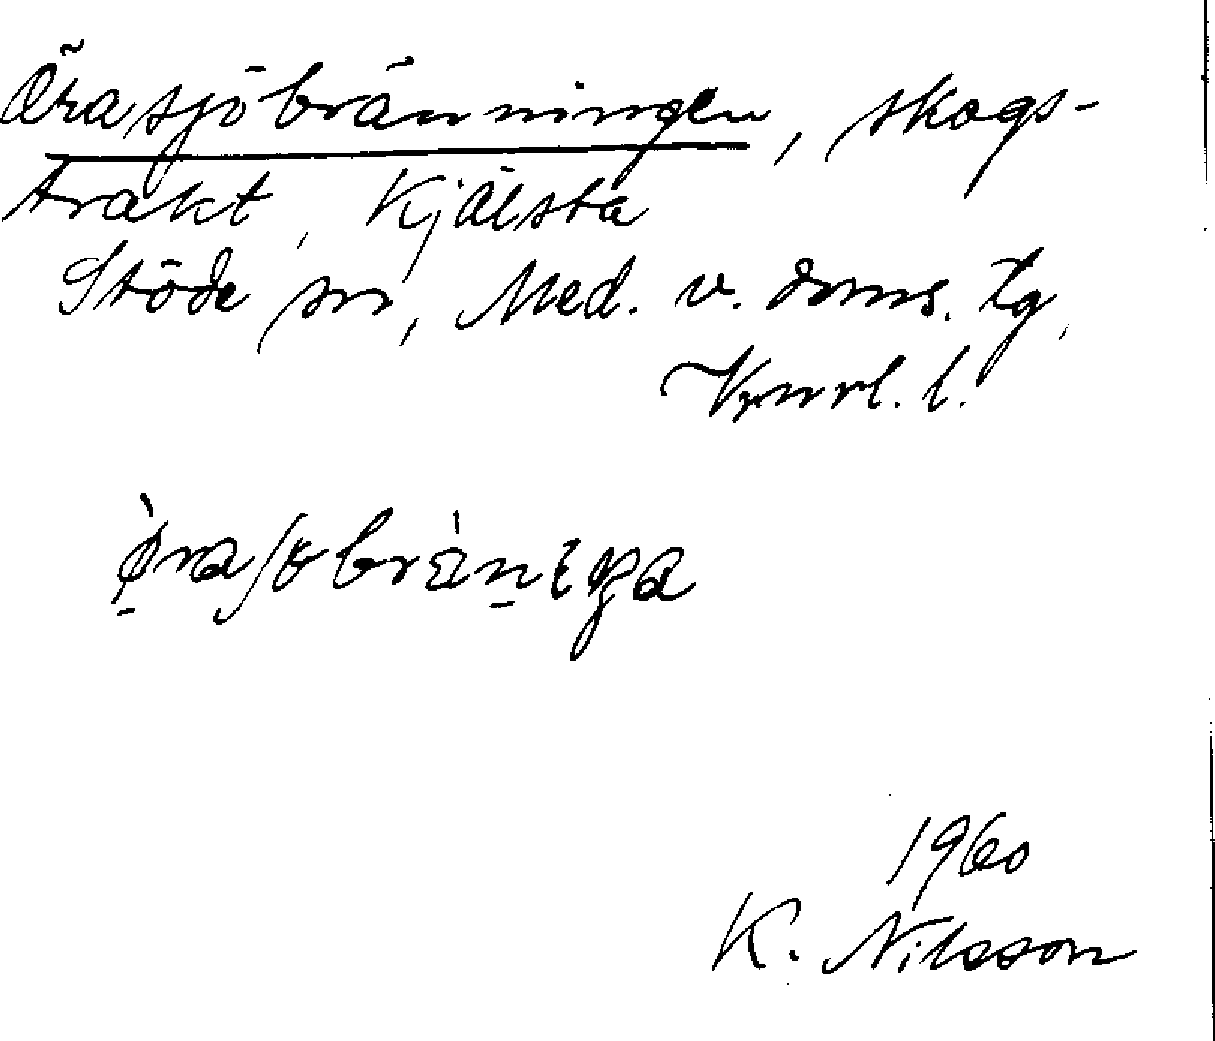 Örasjöbränningen, skogs-
trakt, Kjälsta
Stöde sn, Med. v. doms. tg,
Vnrl. l.
1960
K. Nilsson